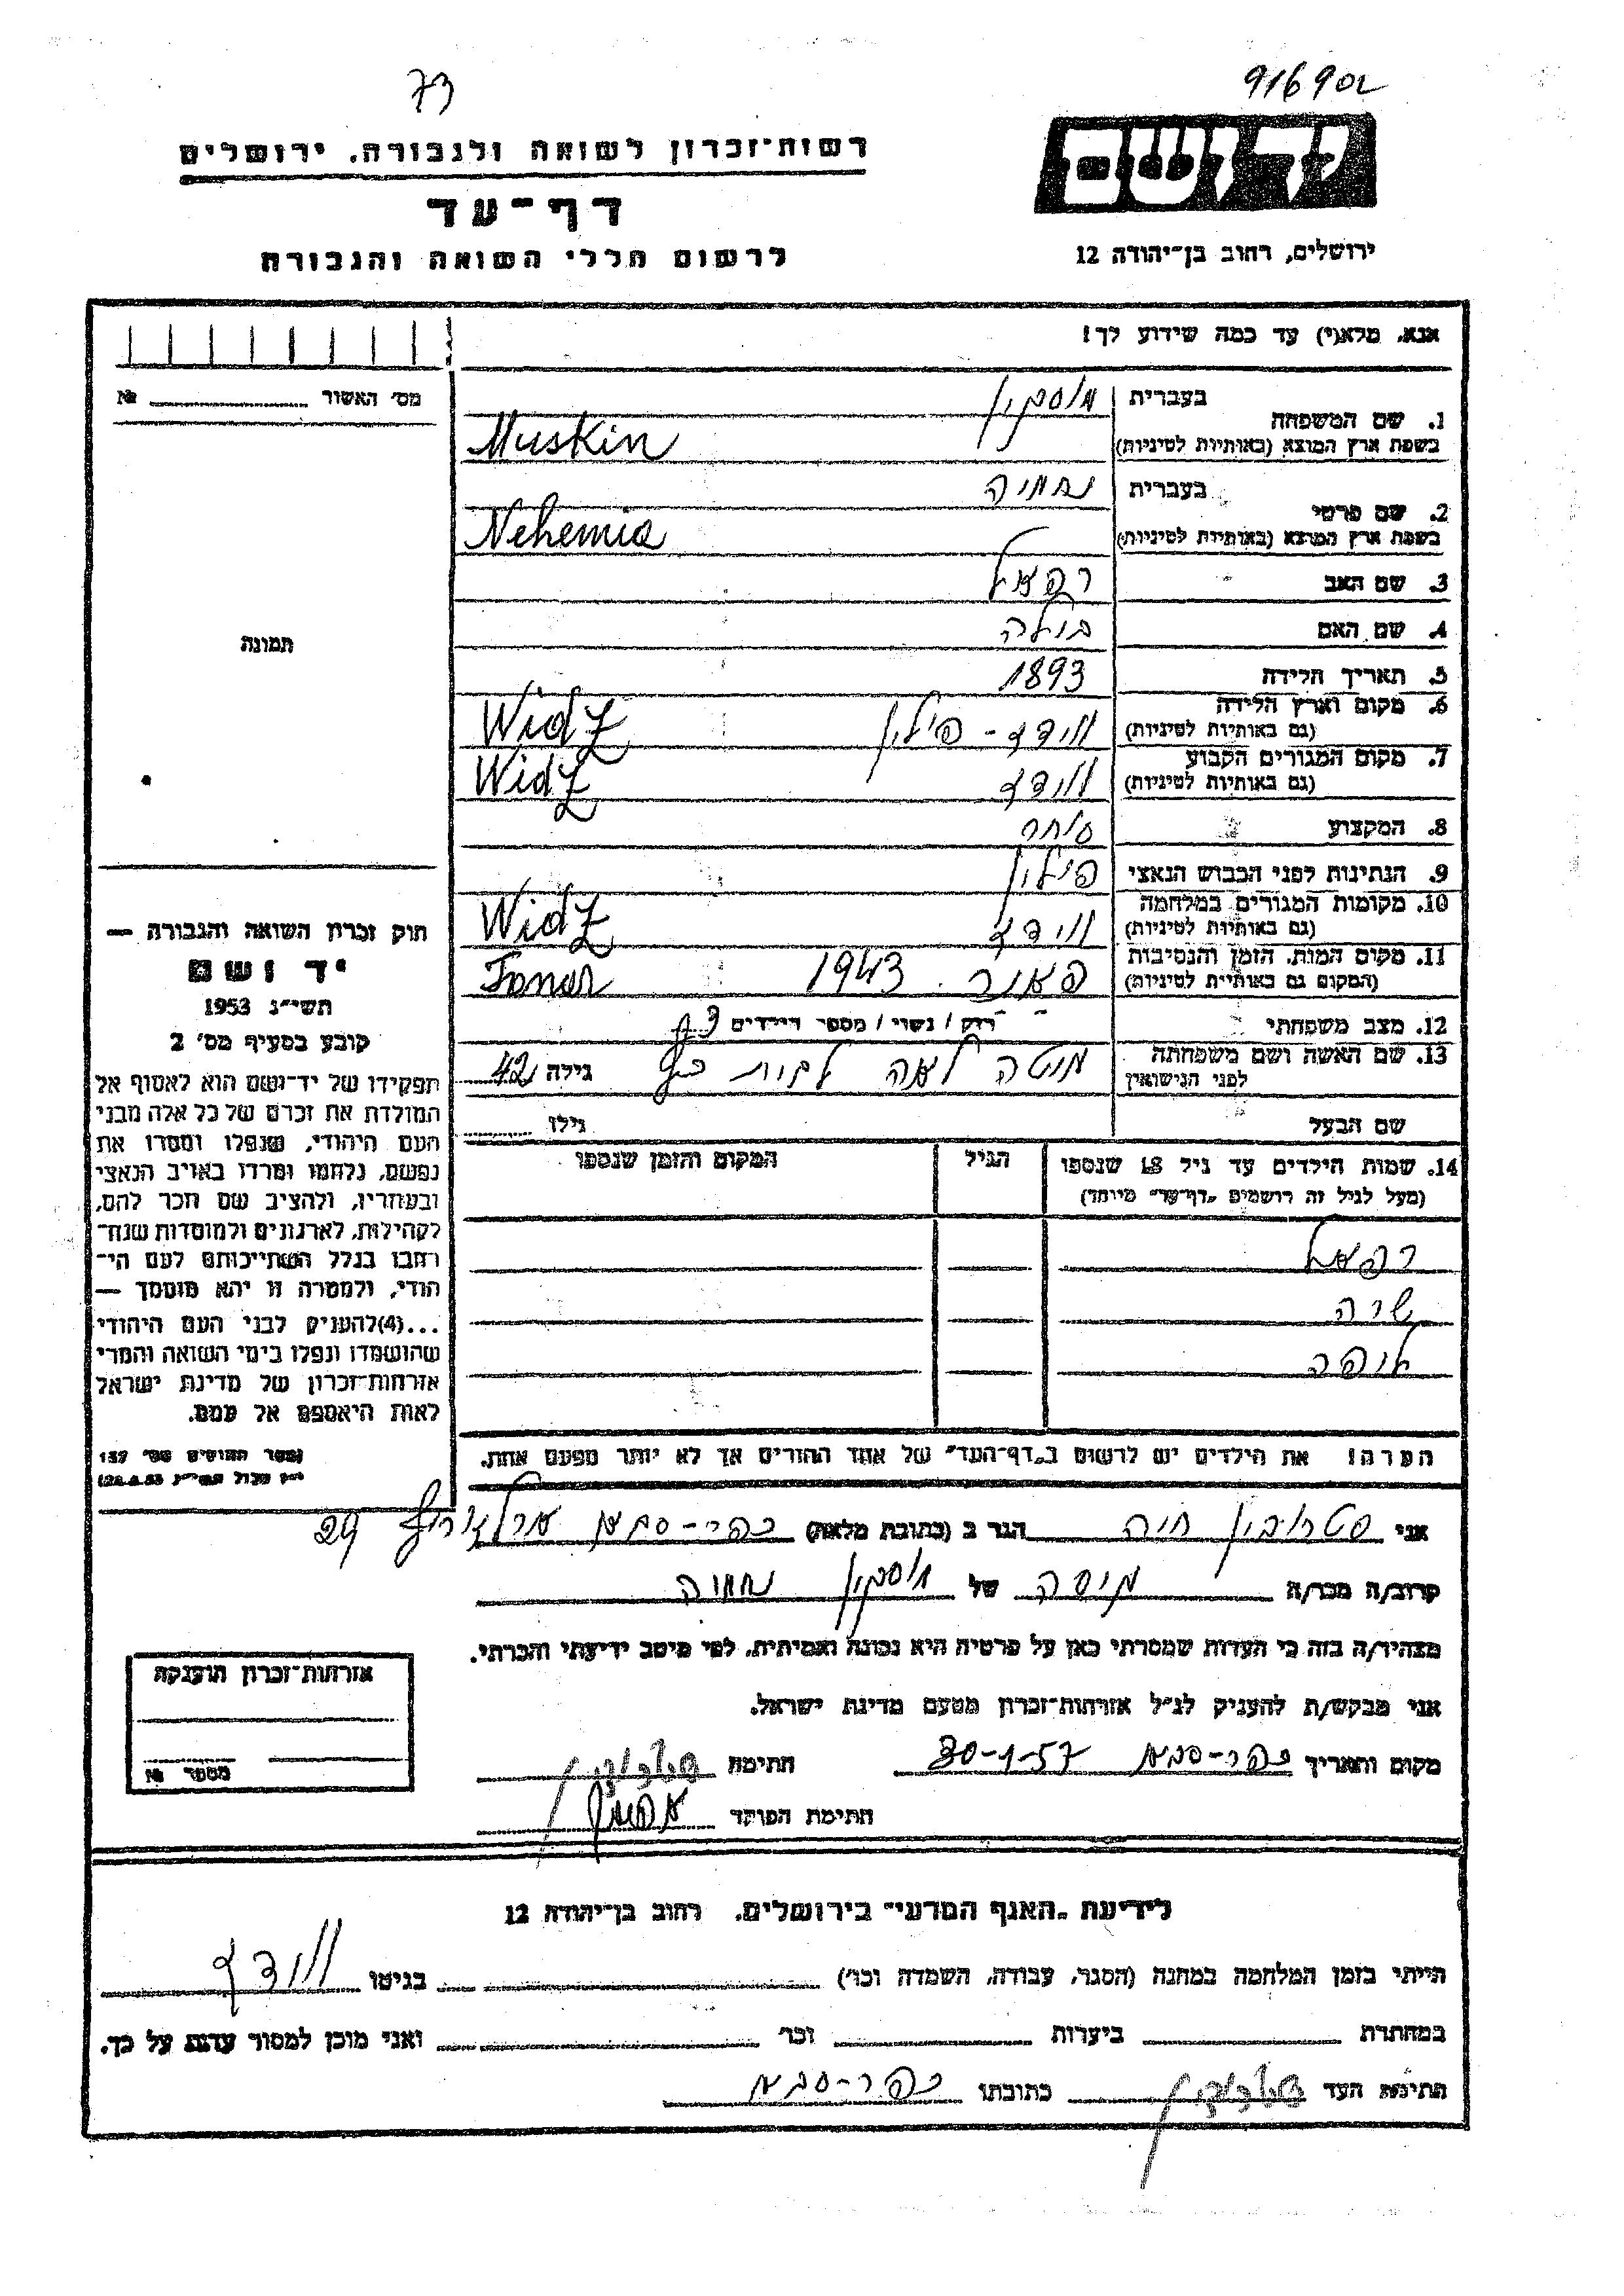 73
916902
רשות־זכרון לשואה ולגבורה, ירושלים
יד ושם
דף־עד
לרשום חללי השואה והגבורה
ירושלים, רחוב בן־יהודה 12
אנא, מלא(י) עד כמה שידוע לך!
מס׳ האשור № 
תמונה
1. שם המשפחה בעברית מוסקין
בשפת ארץ המוצא (באותיות לטיניות) Muskin
2. שם פרטי בעברית נחמיה
בשפת ארץ המוצא (באותיות לטיניות) Nehemia
3. שם האב רפאל
4. שם האם
5. תאריך הלידה 1893
6. מקום וארץ הלידה
(גם באותיות לטיניות) ווידז - פולין Widz
7. מקום המגורים הקבוע
(גם באותיות לטיניות) ווידז Widz
8. המקצוע סוחר
9. הנתינות לפני הכבוש הנאצי פולין
10. מקומות המגורים במלחמה
(גם באותיות לטיניות) ווידז Widz
11. מקום המות, הזמן והנסיבות
(המקום גם באותיות לטיניות) פאנר. 1943 Fonar
12. מצב משפחתי רוק / נשוי / מספר הילדים 3
13. שם האשה ושם משפחתה
לפני הנישואין לאה לבית גילה 42
שם הבעל גילו
14. שמות הילדים עד גיל 18 שנספו
(מעל לגיל זה רושמים „דף־עד״ מיוחד)
הגיל
המקום והזמן שנספו
רפאל
שרה
הערה! את הילדים יש לרשום ב„דף־העד״ של אחד ההורים אך לא יותר מפעם אחת.
חוק זכרון השואה והגבורה —
יד ושם
תשי״ג 1953
קובע בסעיף מס׳ 2
תפקידו של יד־ושם הוא לאסוף אל
המולדת את זכרם של כל אלה מבני
העם היהודי, שנפלו ומסרו את
נפשם, נלחמו ומרדו באויב הנאצי
ובעוזריו, ולהציב שם וזכר להם,
לקהילות, לארגונים ולמוסדות שנח־
רבו בגלל השתייכותם לעם הי־
הודי, ולמטרה זו יהא מוסמך —
...(4)להעניק לבני העם היהודי
שהושמדו ונפלו בימי השואה והמרי
אזרחות־זכרון של מדינת ישראל
לאות היאספם אל עמם.
(ספר החוקים מס׳ 137
אני חיה הגר ב (כתובת מלאה) כפר-סבא ארלוזורוב 29
קרוב/ה מכר/ה של מוסקין נחמיה
מצהיר/ה בזה כי העדות שמסרתי כאן על פרטיה היא נכונה ואמיתית, לפי מיטב ידיעתי והכרתי.
אני מבקש/ת להעניק לנ״ל אזרחות־זכרון מטעם מדינת ישראל.
מקום ותאריך כפר-סבא 30-1-57 חתימה
חתימת הפוקד
אזרחות־זכרון הוענקה
מספר №
לידיעת „האגף המדעי״ בירושלים, רחוב בן־יהודה 12
הייתי בזמן המלחמה במחנה (הסגר, עבודה, השמדה וכו׳) בגיטו ווידז
במחתרת ביערות וכו׳ ואני מוכן למסור עדות על כך.
חתימת העד כתובתו כפר-סבא